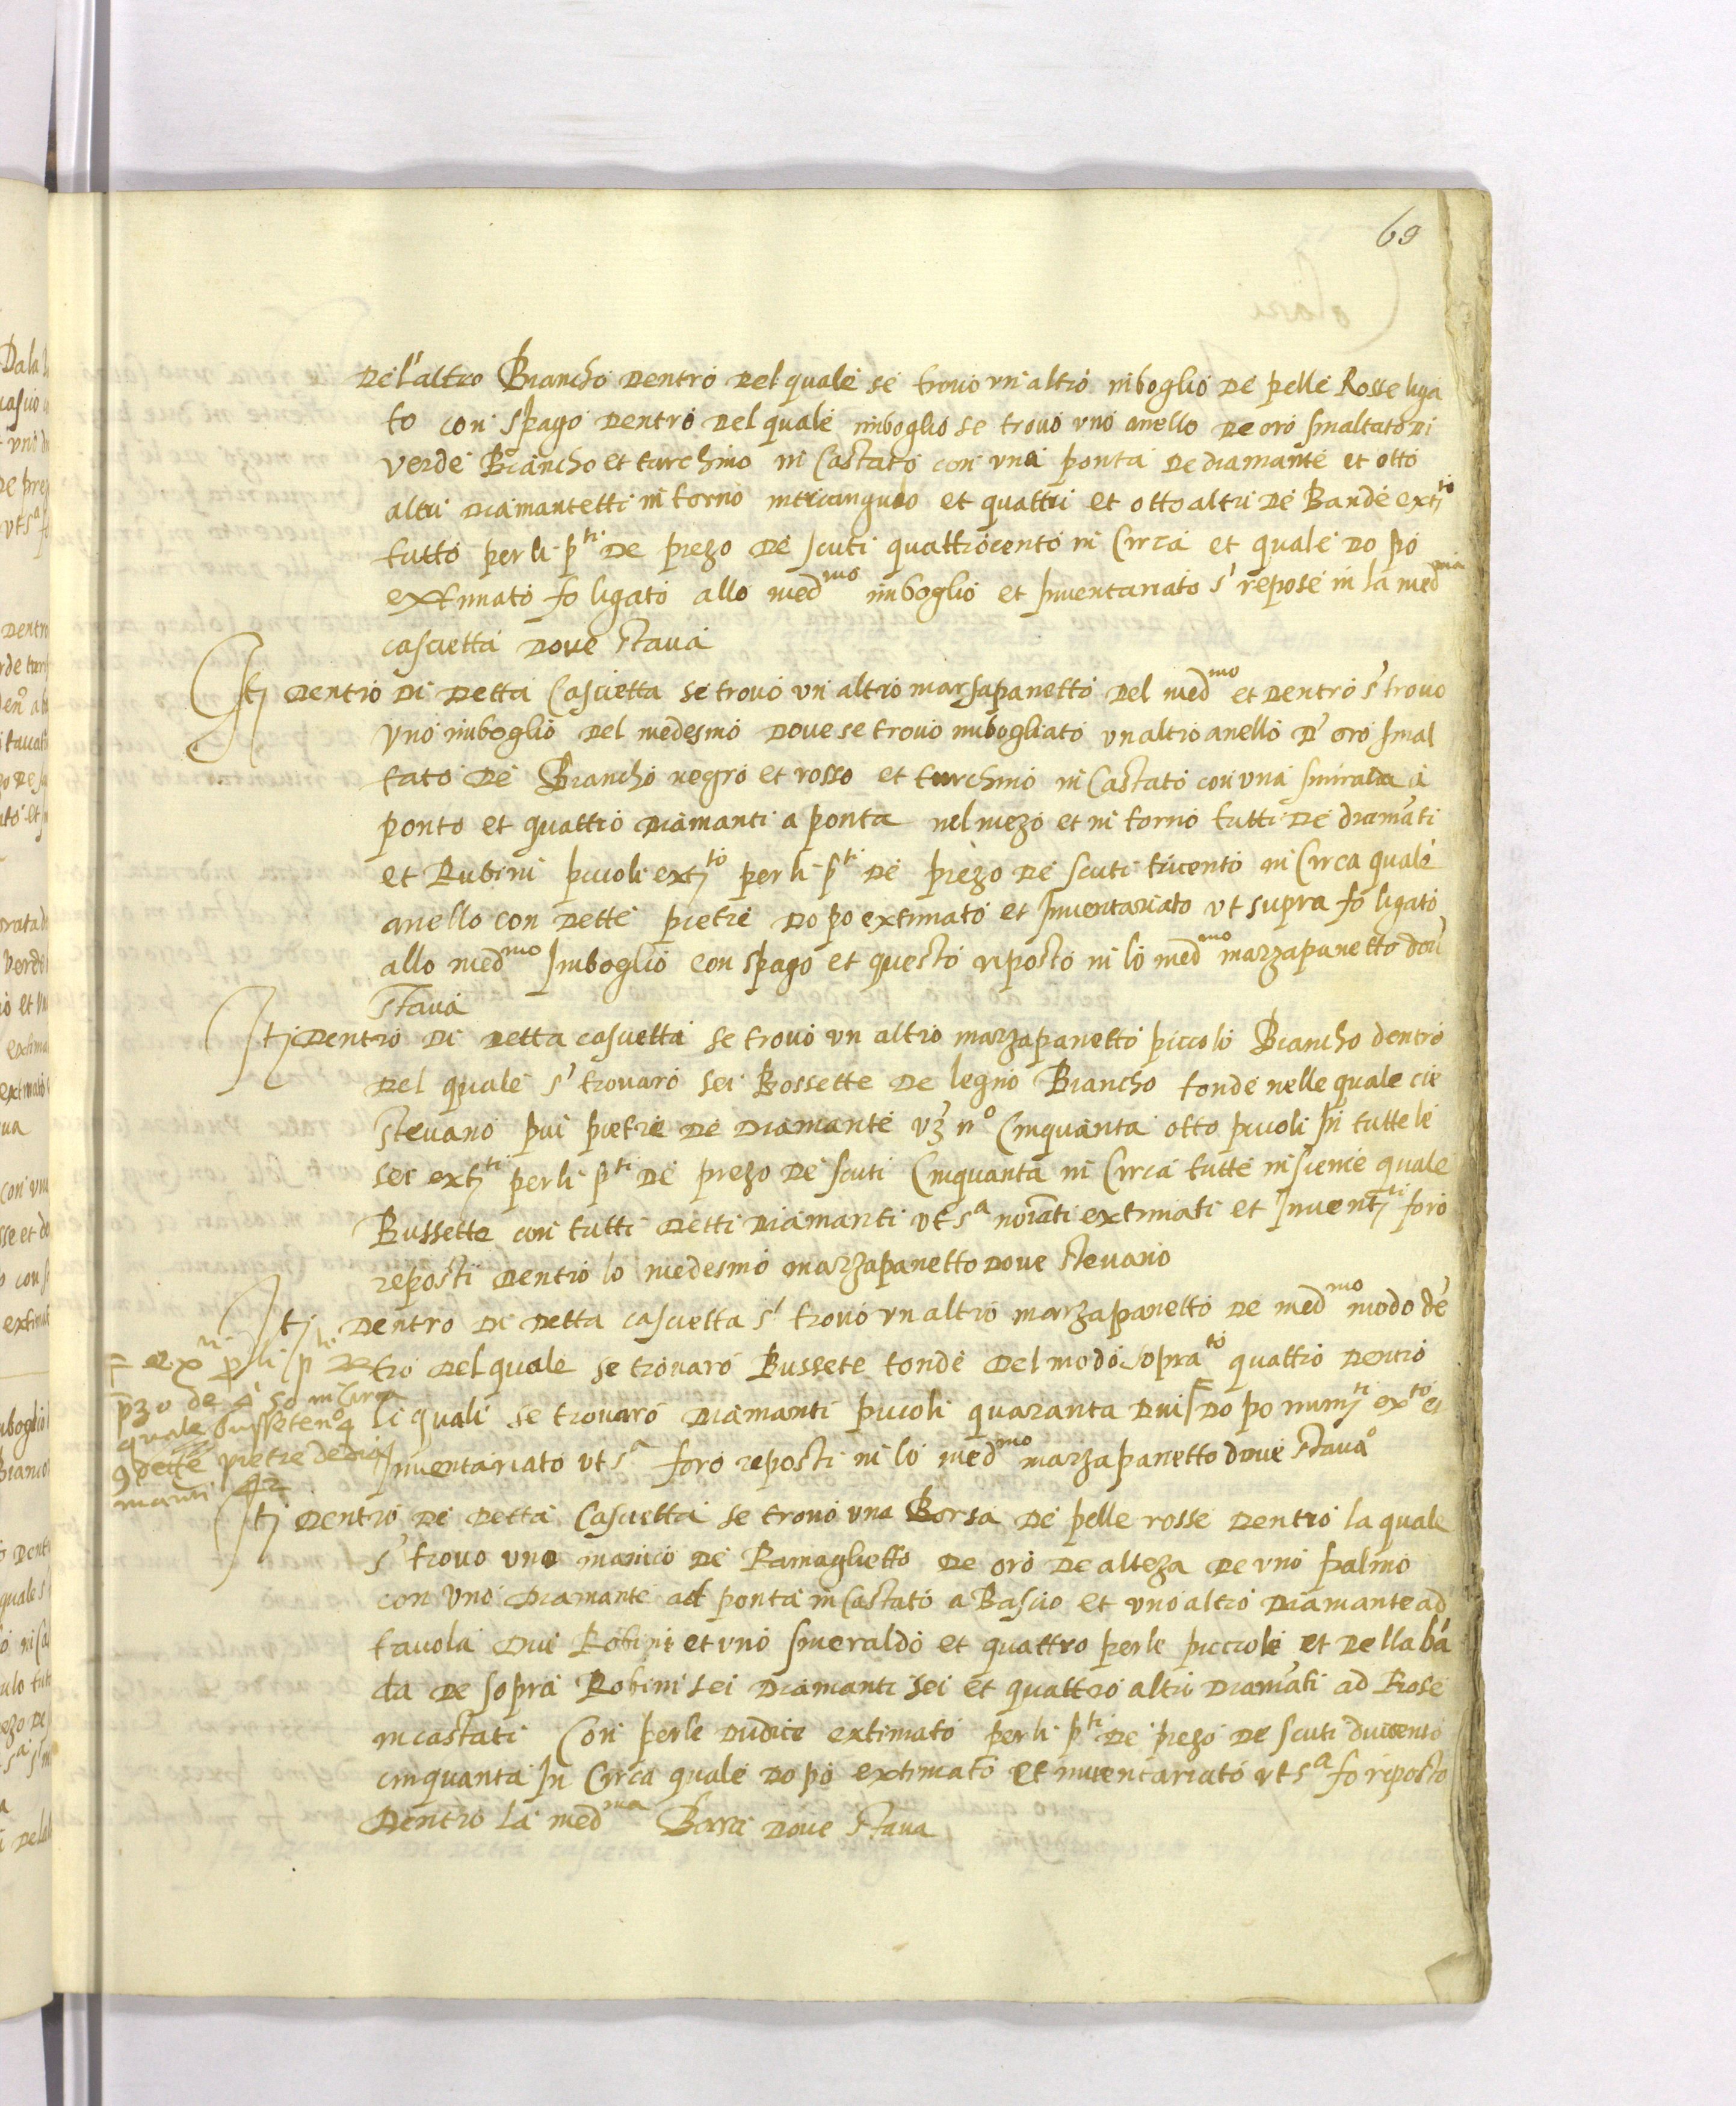 69
del'altro Biancho dentro del quale se trouo un altro imboglio de pelle Rosse liga
to con spago dentro del quale imboglio se trouo uno anello de oro smaltato di
verde Biancho et turchino in Castato con una ponta de diamante et otto
altri diamantetti in torno in triangulo et quattri et otto altri de Bande ext.to
tutto per li p.ti de prezo de scuti quattrocento in Circa et quale do po
extimato fo ligato allo med.mo imboglio et Inventariato s' repose in la med.ma
cascietta doue staua
It dentro di detta Cascietta se trouo un altro marzapanetto del med.mo et dentro s' trouo
uno imboglio del medesmo doue se trouo imbogliato un altro anello d' oro smal
tato de Biancho negro et rosso et turchino in Castato con una smiralda a
ponto et quattro diamanti a ponta nel mezo et in torno tutti de diamāti
et Rubini piccoli ext.to per li p.ti de prezo de scuti tricento in Circa quale
anello con dette pietre do po extimato et Inventariato ut supra fo ligato
allo med.mo Imboglio con spago et questo riposto in lo med.mo marzapanetto dou'
staua
It dentro di detta cascietta se trouo un altro marzapanetto piccolo Biancho dentro
del quale s' trouaro sei Bossette de legno Biancho tonde nelle quale cie
steuano piu pietre de diamante vz n.o Cinquanta otto piccoli In tutte le
sei ext.ti per li p.ti de prezo de scuti Cinquanta in Circa tutte insieme quale
Bussette con tutti detti diamanti ut s.a noiāti extimati et Inuent.ti foro
reposti dentro lo medesmo marzapanetto doue steuano
It dentro di detta cascietta s' trouo un altro marzapanetto de med.mo modo dē
tro del quale se trouaro Bussete tonde del modo sopra.to quattro dentro
li quali se trouaro diamanti piccoli quaranta dui do po num.ti ex.to et
Inventariato ut s.a foro reposti in lo med.mo marzapanetto doue staua.o
ex.ti p li p.ti de
pzo de 50 in Circa
quale bussete n.o 4
9 dette pietre de dia
manti 42
It dentro de detta Cascietta se trouo una Borsa de pelle rosse dentro la quale
s' trouo uno manico de Ramaglietto de oro de alteza de uno palmo
con uno diamante ad ponta in Castato a Bascio et uno altro diamante ad
tauola dui Robini et uno smeraldo et quattro perle piccole et della bā
da de sopra Robini sei diamanti sei et quattro altri diamāti ad Rose
incastati Con perle dudice extimato per li p.ti de prezo de scuti ducento
cinquanta In Circa quale do po extimato et inuentariato ut s.a fo reposto
dentro la med.ma Borsa doue staua